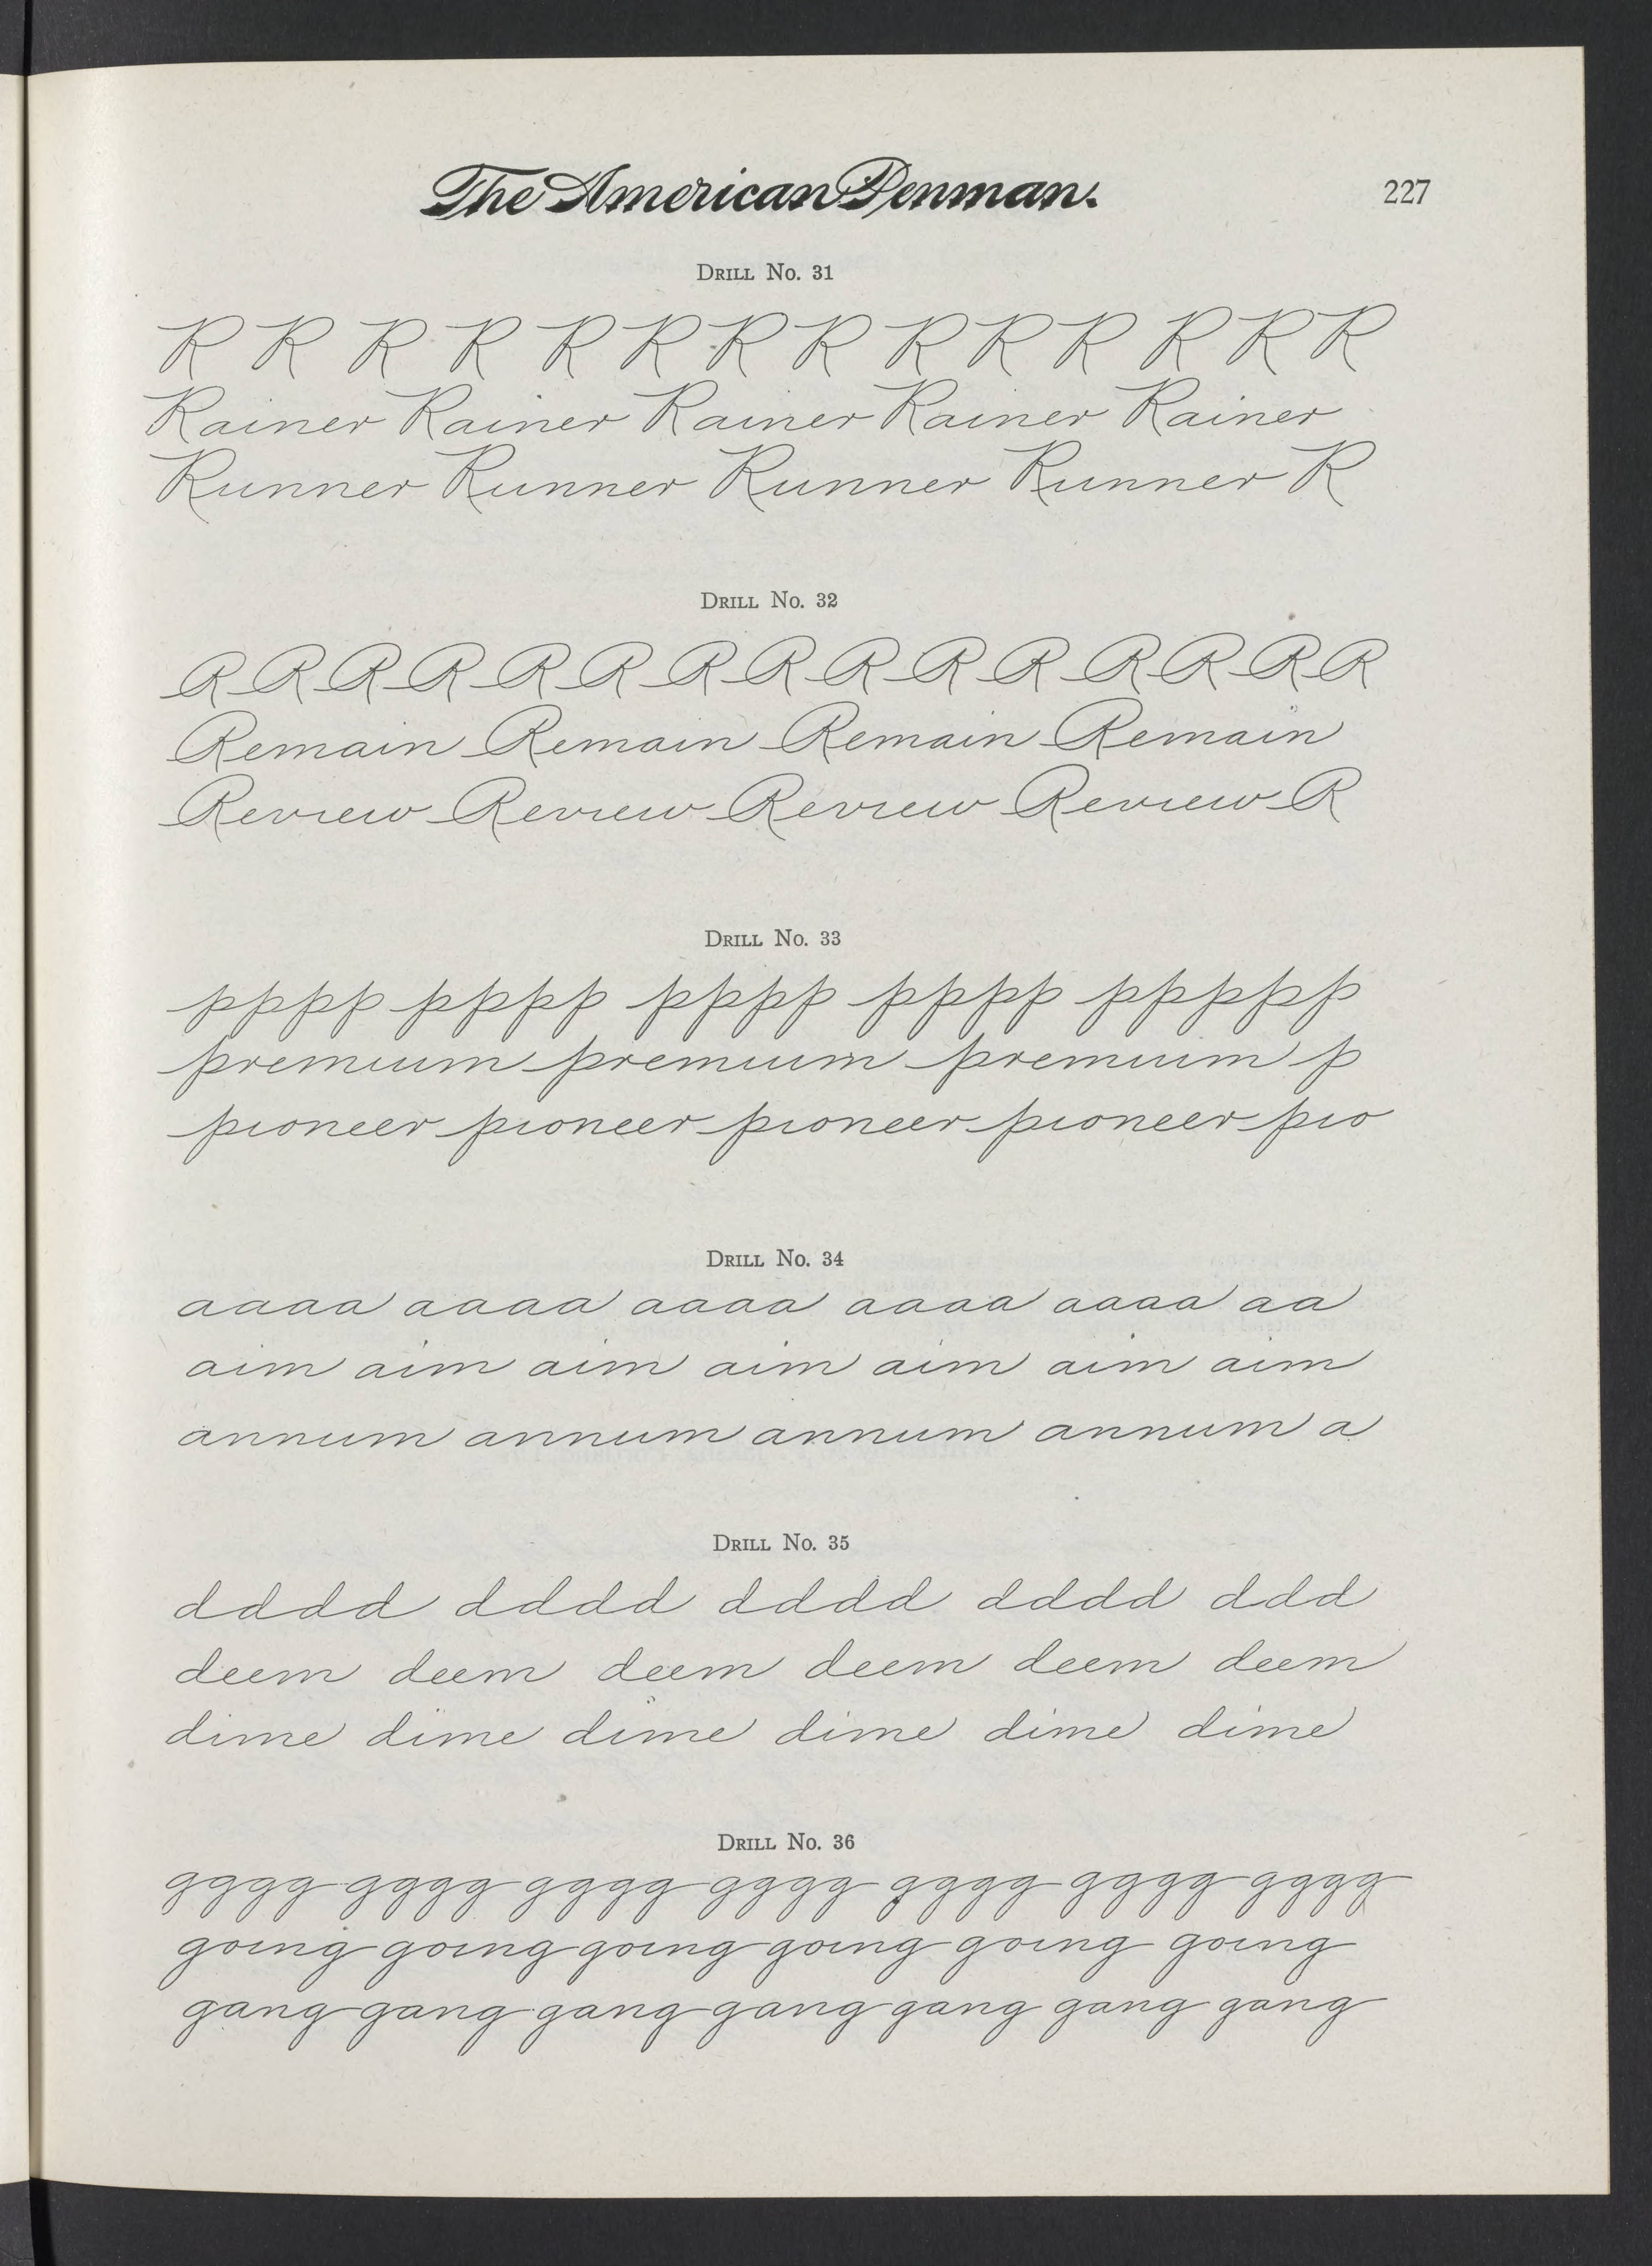 The American Penman.
227
Drill No. 31
R R R R R R R R R R R R R R
Rainer Rainer Rainer Rainer Rainer
Runner Runner Runner Runner R
Drill No. 32
R R R R R R R R R R R R R R R
Remain Remain Remain Remain
Review Review Review Review R
Drill No. 33
pppp pppp pppp pppp ppppp
premium premium premium p
pioneer pioneer pioneer pioneer pio
Drill No. 34
aaaa aaaa aaaa aaaa aaaa aa
aim aim aim aim aim aim aim
annum annum annum annum a
Drill No. 35
dddd dddd dddd dddd ddd
deem deem deem deem deem deem
dime dime dime dime dime dime
Drill No. 36
gggg gggg gggg gggg gggg gggg gggg
going going going going going going
gang gang gang gang gang gang gang